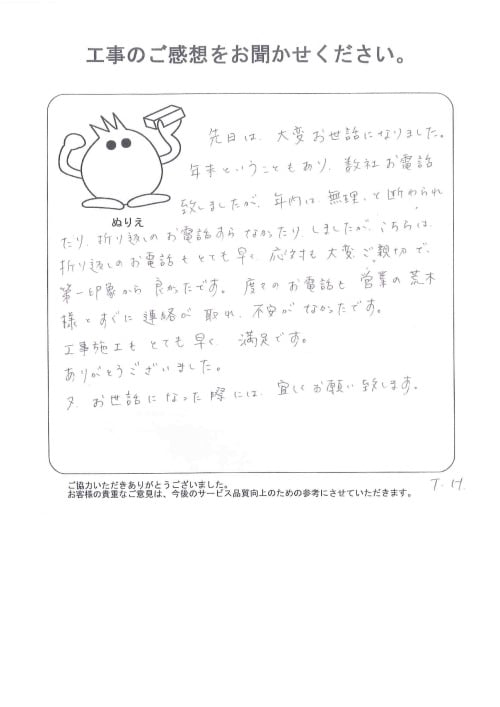 工事のご感想をお聞かせください。
先日は、大変お世話になりました。
年末ということもあり、数社お電話
致しましたが、年内は、無理、と断わられ
ぬりえ
たり、折り返しのお電話すらなかったり、しましたが、こちらは、
折り返しのお電話もとても早く、応対も大変ご親切で、
第一印象から良かったです。度々のお電話も営業の荒木
様とすぐに連絡が取れ、不安がなかったです。
工事施工もとても早く、満足です。
ありがとうございました。
又、お世話になった際には、宜しくお願い致します。
ご協力いただきありがとうございました。
お客様の貴重なご意見は、今後のサービス品質向上のための参考にさせていただきます。
T.H.